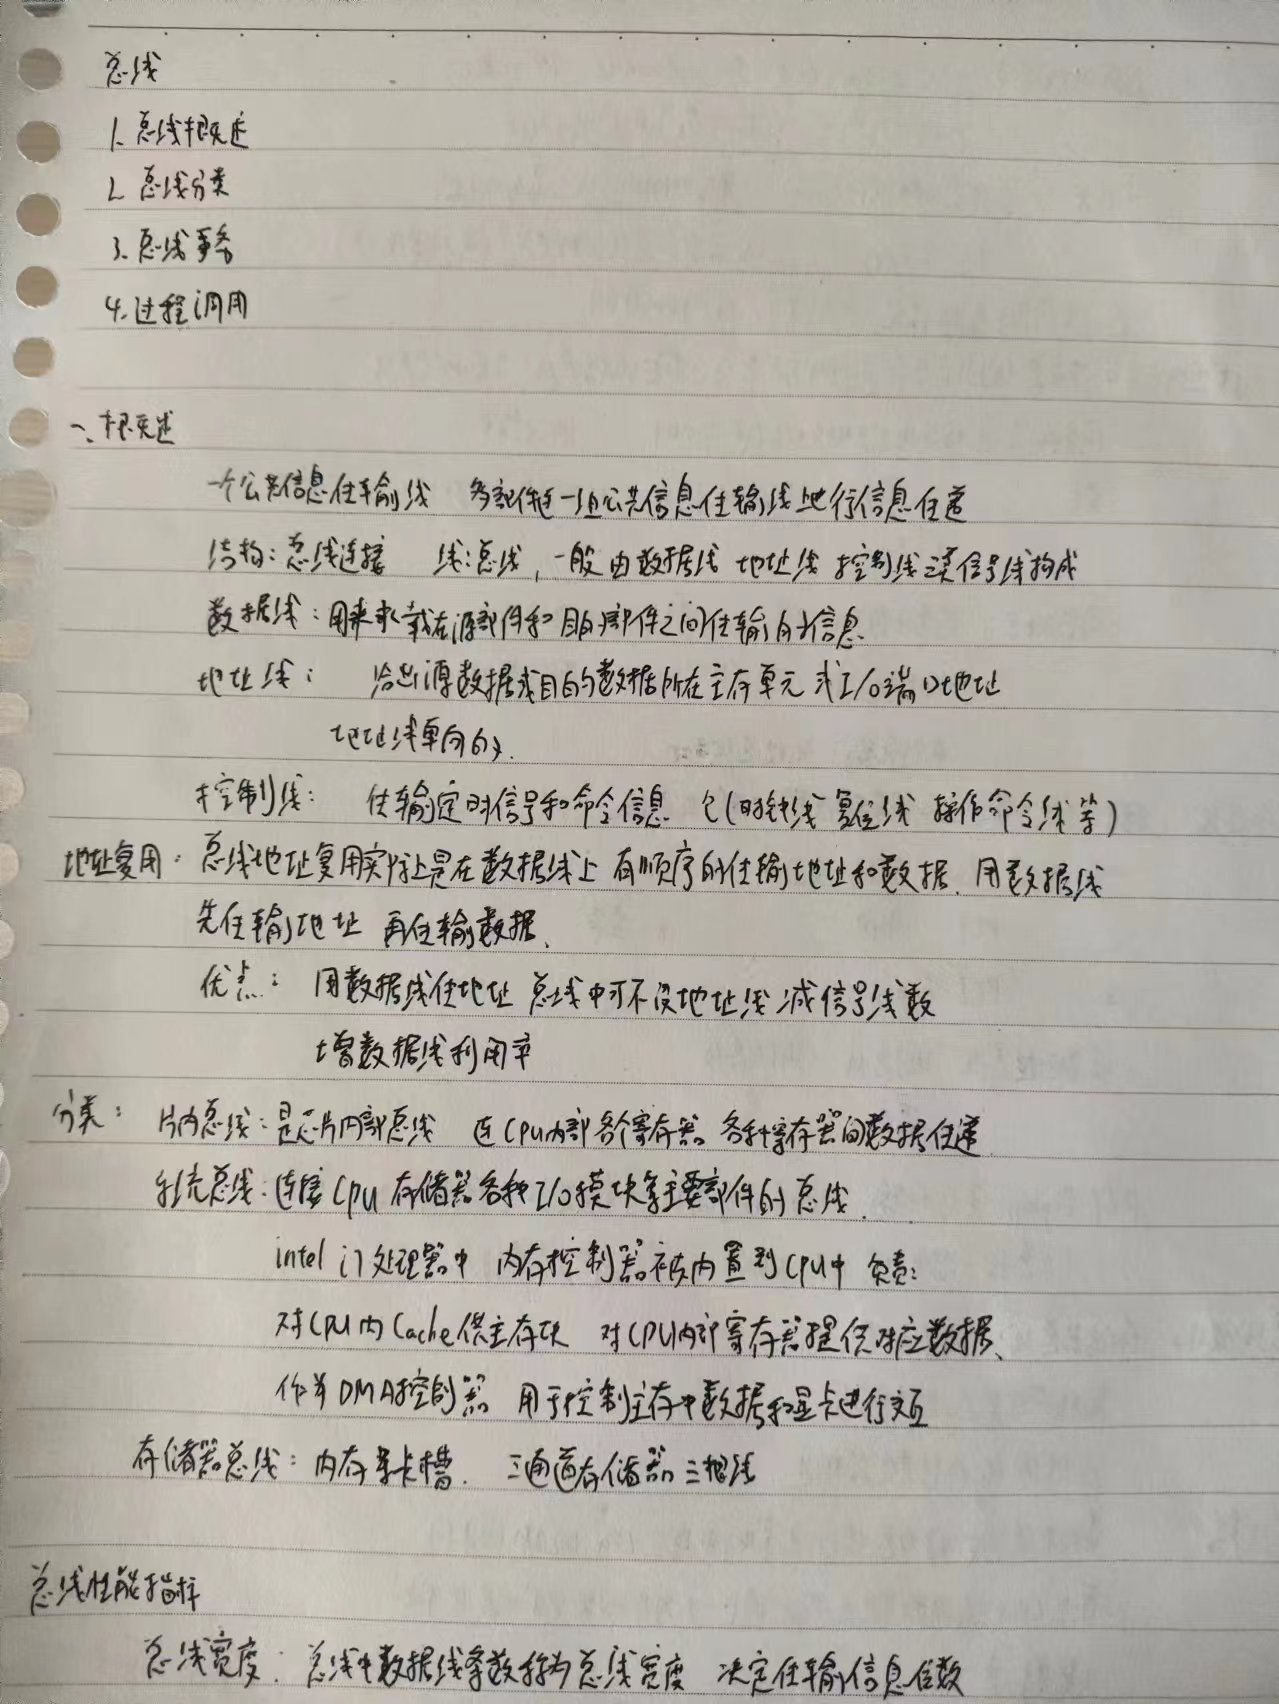 总线
1. 总线概述
2. 总线分类
3. 总线事务
4. 过程调用
一、概述
一个公共信息传输线 多部件在一组公共信息传输线上进行信息传递
结构: 总线连接 线: 总线, 一般由数据线 地址线 控制线 信号线构成
数据线: 用来承载在源部件和目的部件之间传输的信息
地址线: 给出源数据或目的数据所在主存单元或I/O端口地址
地址线单向的.
控制线: 传输定时信号和命令信息 (时钟线 复位线 操作命令线等)
地址复用: 总线地址复用实际上是在数据线上有顺序的传输地址和数据. 用数据线
先传输地址 再传输数据、
优点: 用数据线传地址 总线中可不设地址线 减信号线数
增数据线利用率
分类: 片内总线: 是芯片内部总线 连CPU内部各个寄存器. 各种寄存器间数据传递
系统总线: 连接CPU 存储器 各种I/O模块等主要部件的总线.
intel i7处理器中 内存控制器被内置到CPU中 负责:
对CPU内Cache供主存块 对CPU内部寄存器提供对应数据、
作为DMA控制器 用于控制主存中数据和显卡进行交互
存储器总线: 内存条卡槽. 三通道存储器 三根线
总线性能指标
总线宽度: 总线中数据线条数称为总线宽度 决定传输信息位数